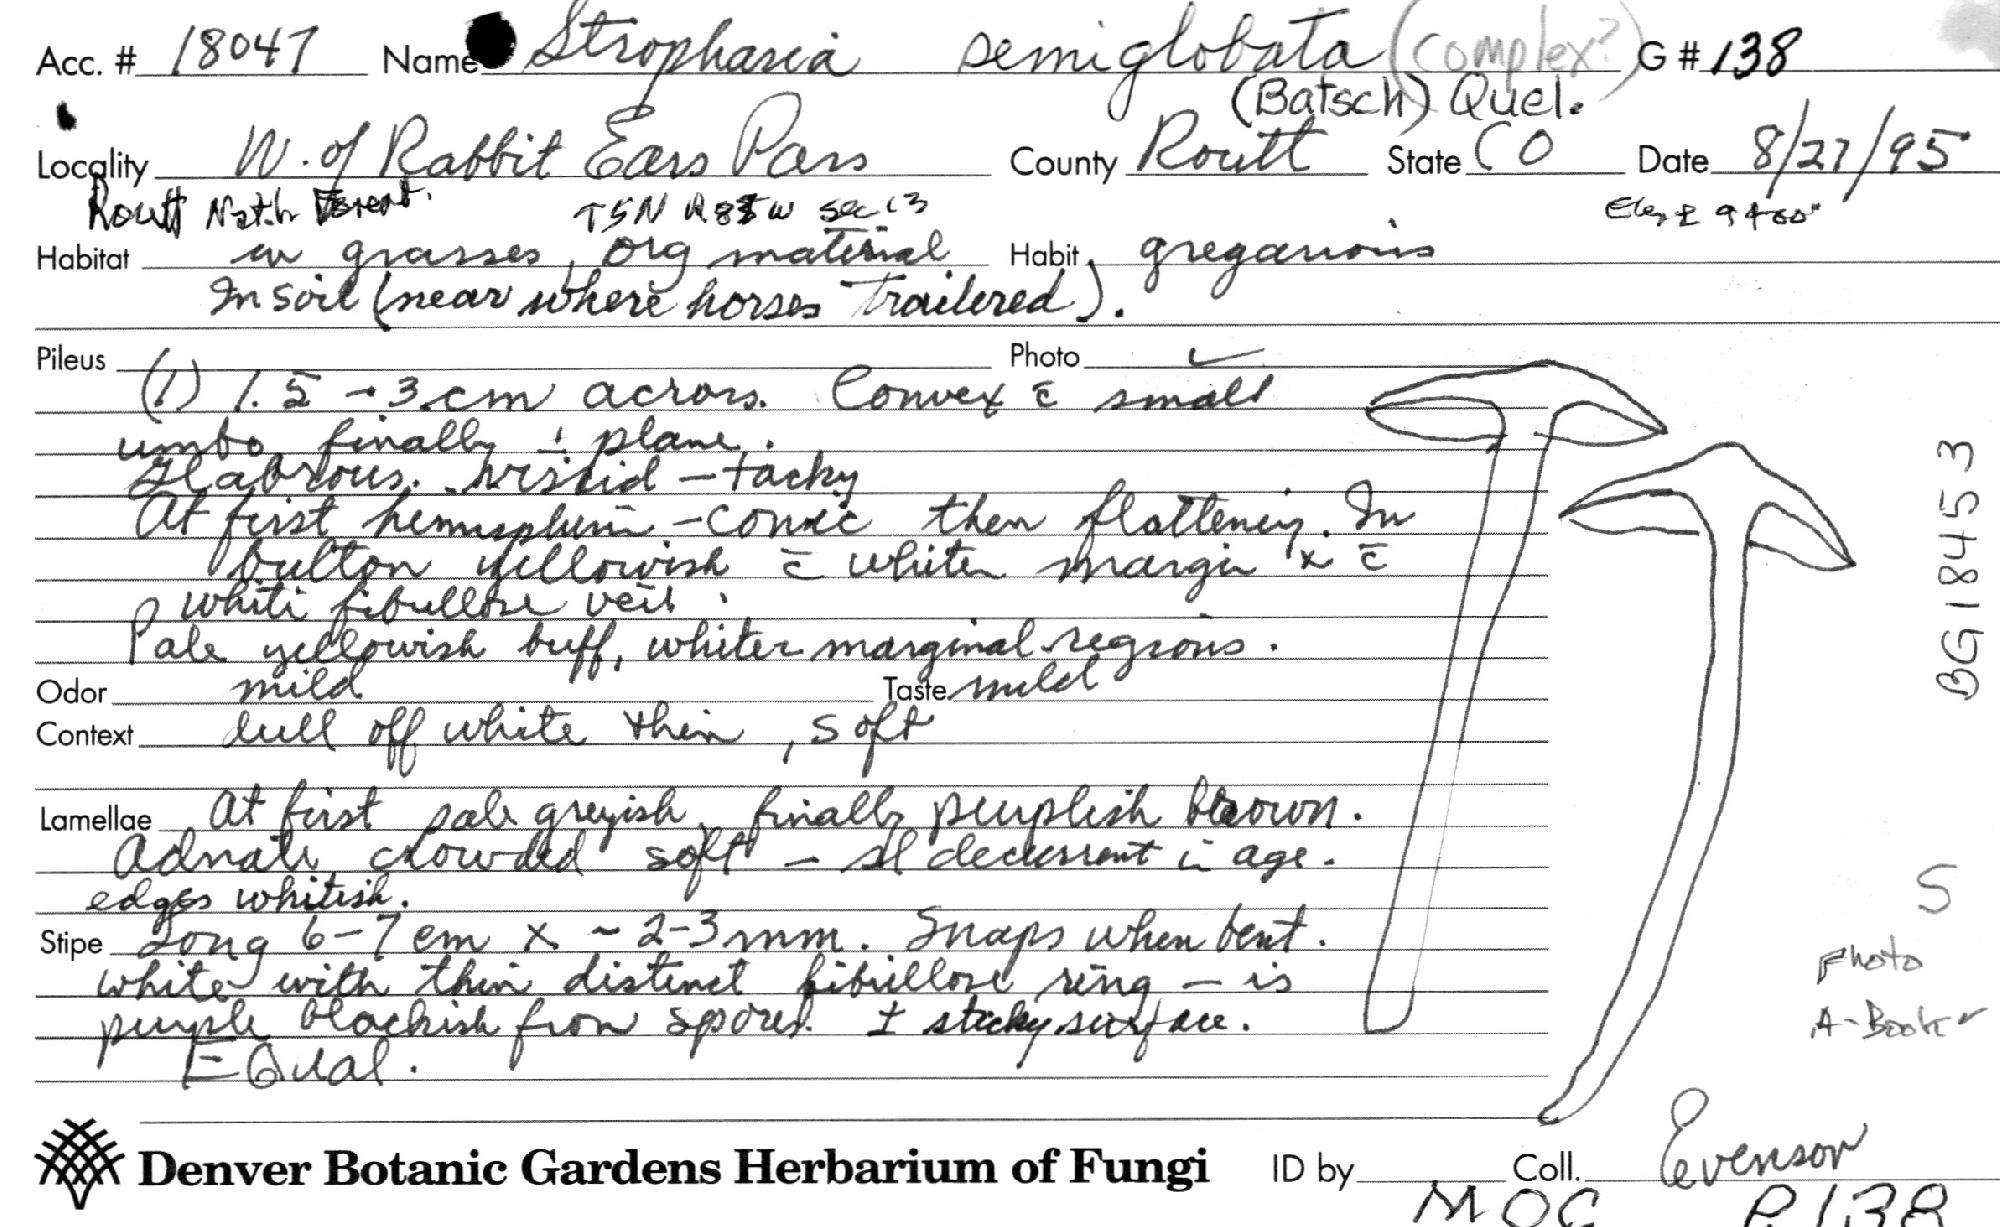 Acc. # 18047 Name Stropharia semiglobata (complex?) G # 138
(Batsch) Quel.
Locality W. of Rabbit Ears Pass County Routt State CO Date 8/27/95
Routt Nat'l Forest. T5N R83W Sec 13 Elev ± 9400'
Habitat in grasses, org material Habit gregarious
In soil (near where horses trailered).
Pileus Photo ✓
(1) 1.5 - 3 cm across. Convex c̄ small
umbo finally ± plane.
Glabrous. viscid - tacky
At first hemispheric - conic then flattening. In
button yellowish c̄ white margin x c̄
white fibrillose veil.
Pale yellowish buff, whiter marginal regions.
Odor mild Taste mild
Context dull off white thin, soft
Lamellae At first pale greyish, finally purplish brown.
Adnate crowded soft - sl decurrent in age.
edges whitish.
Stipe Long 6-7 cm x ~ 2-3 mm. Snaps when bent.
white with thin distinct fibrillose ring - is
purple blackish from spores. ± sticky surface.
Equal.
BG18453
S
Photo
A-Booker
Denver Botanic Gardens Herbarium of Fungi ID by Coll. Evenson
MOC P138